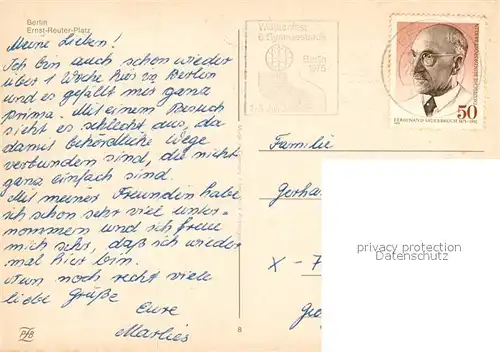 Berlin
Ernst-Reuter-Platz
Meine Lieben!
Ich bin auch schon wieder
über 1 Woche hier in Berlin
und es gefällt mir ganz
prima. Mit einem Besuch
sieht es schlecht aus, da
damit behördliche Wege
verbunden sind, die nicht
ganz einfach sind.
Mit meiner Freundin habe
ich schon sehr viel unter-
nommen und ich freue
mich sehr, daß ich wieder
mal hier bin.
Nun noch recht viele
liebe Grüße
Eure
Marlies
PhB
8
Berlin
1975
50
FERDINAND SAUERBRUCH 1875-1951
DEUTSCHE BUNDESPOST BERLIN
Familie
Gerha
X-7
privacy protection
Datenschutz